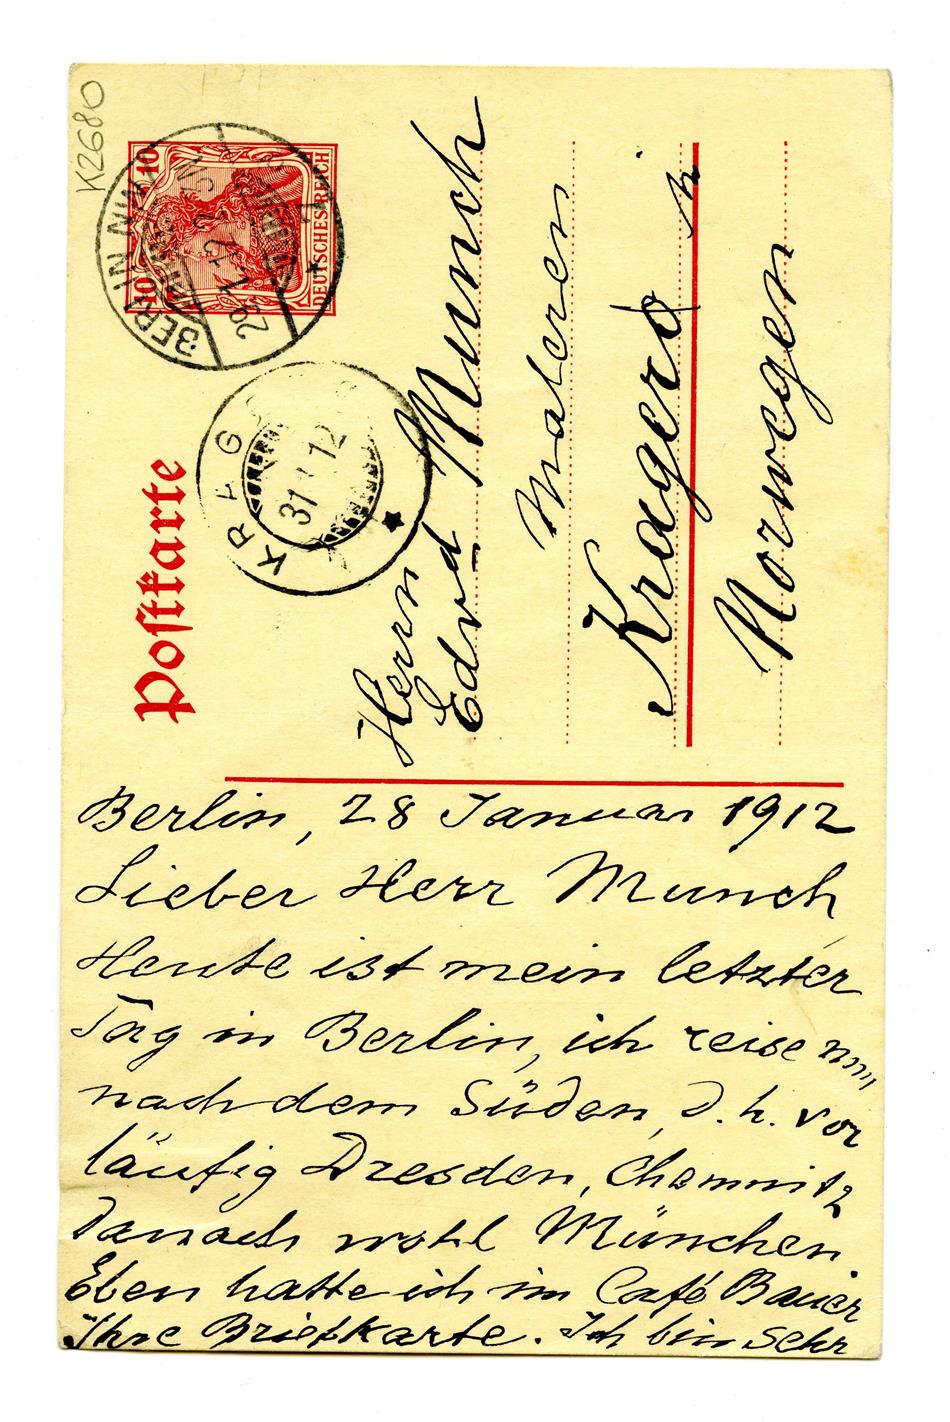 K2680
10 10
DEUTSCHES REICH
BERLIN NW
29.1.12
7
*
KRAG
31 12
Postkarte
Herrn
Edvd Munch
Maleren
Kragerø
Norwegen
Berlin, 28 Januar 1912
Lieber Herr Munch
Heute ist mein letzter
Tag in Berlin, ich reise nun
nach dem Süden, d. h. vor
läufig Dresden, Chemnitz
danach wohl München
Eben hatte ich im Café Bauer
Ihre Briefkarte. Ich bin sehr